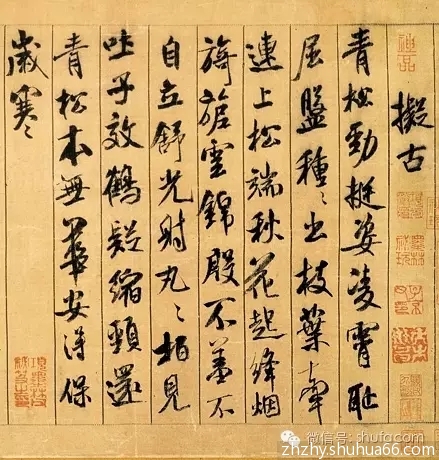 擬古
青松勁挺姿凌霄耻
屈盤種〻出枝葉牽
連上松端秋花起絳烟
旖旎雲錦殷不羞不
自立舒光射丸〻柏見
吐子效鶴疑縮頸還
青松本無華安得保
歲寒
神品
微信号: shufacom
zhzhy.shuhua66.com